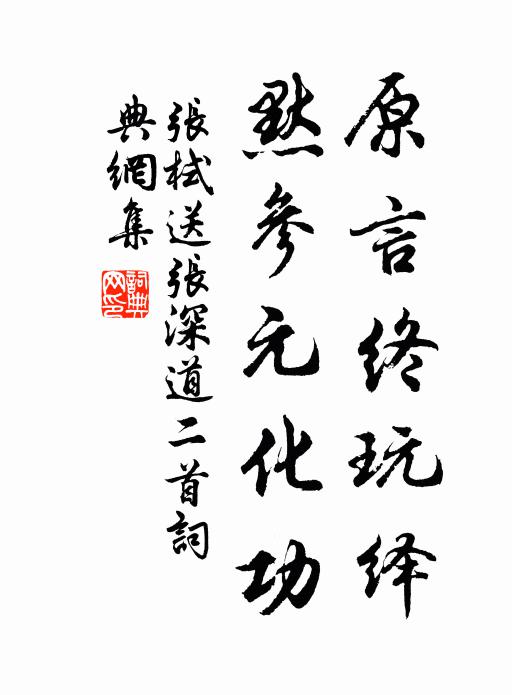 原言终玩绎
默參元化功
張栻送張深道二首詞
典網集
詞典网印